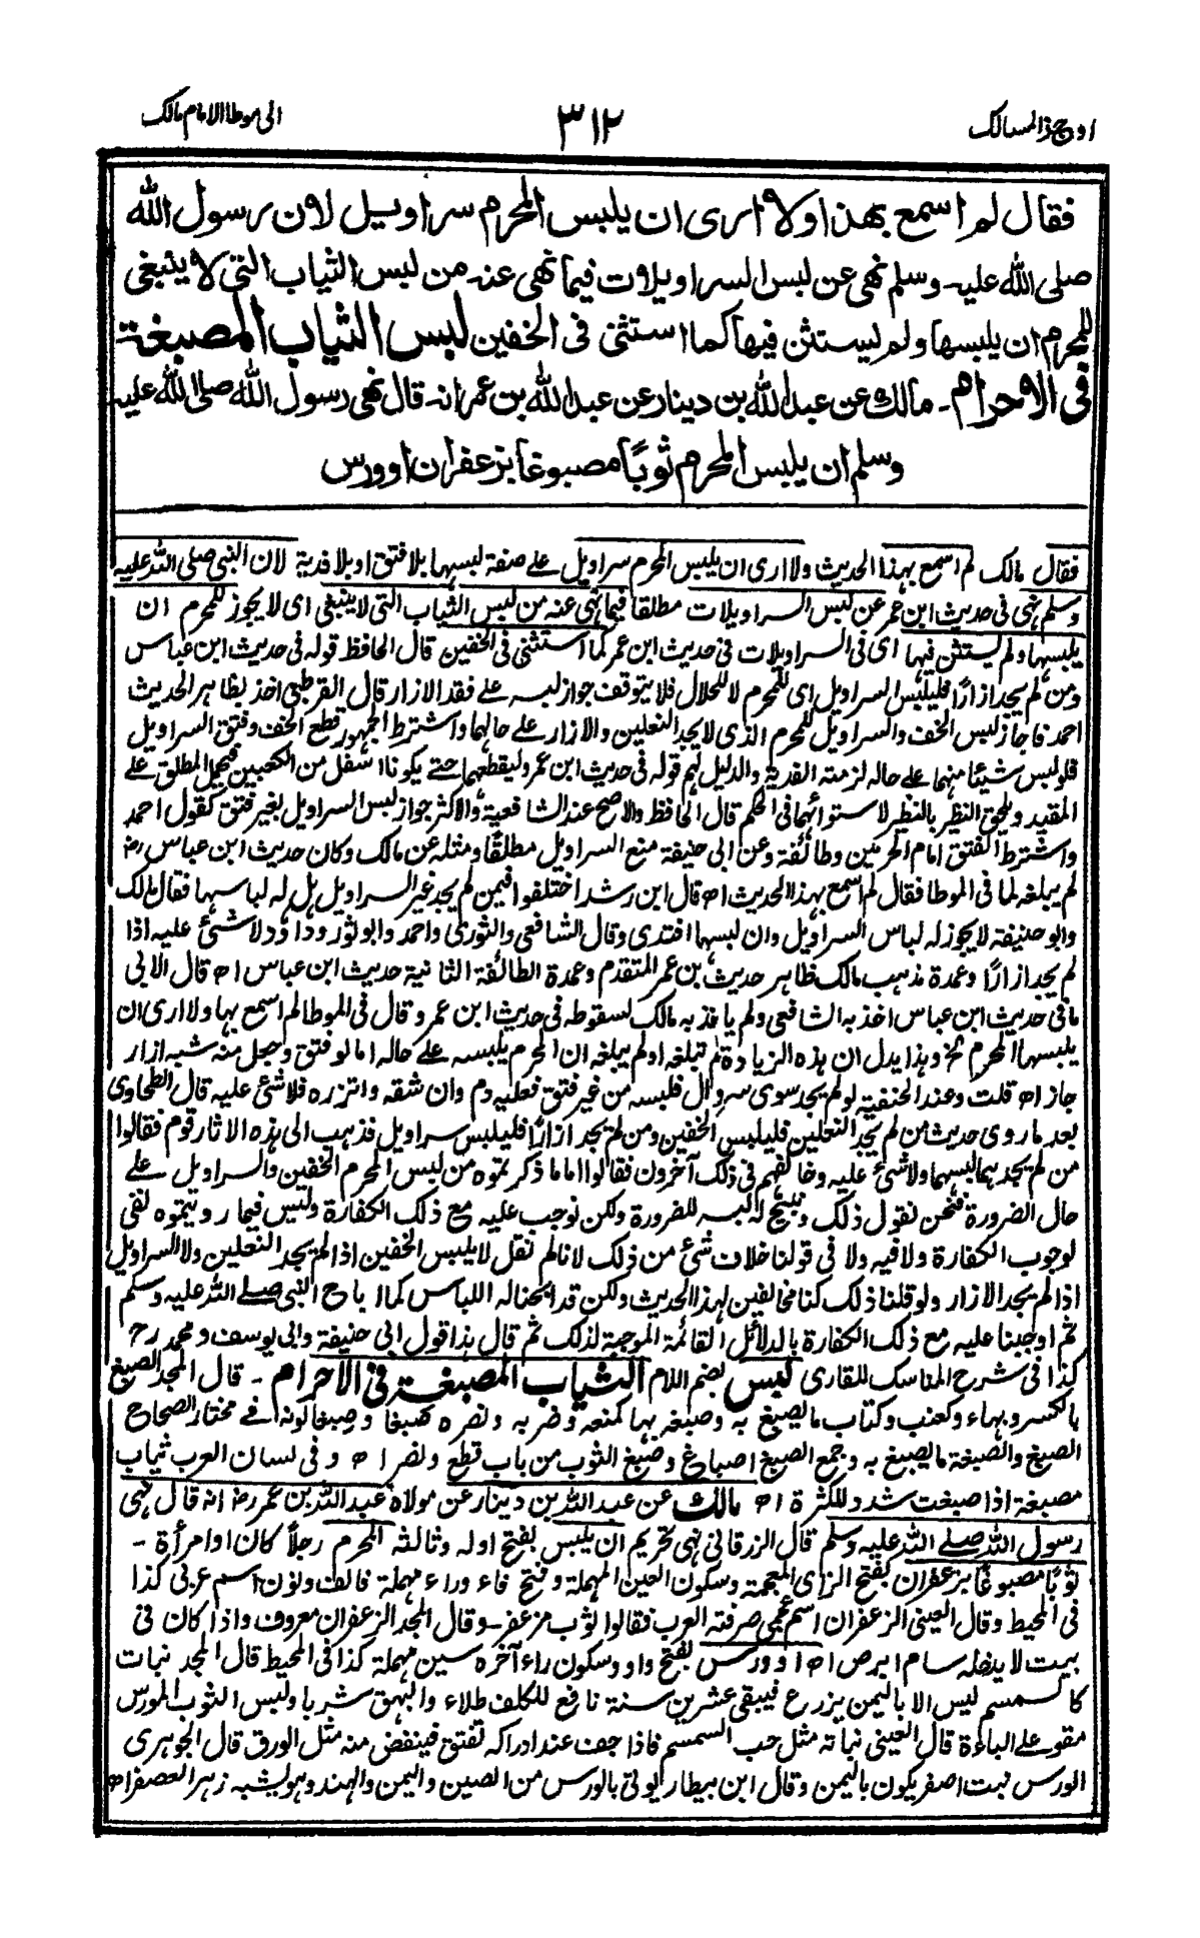 اوجز المسالک
٣١٢
الی موطا الامام مالک
فقال لم اسمع بهذا ولا اری ان یلبس المحرم سراویل لان رسول الله
صلی الله علیه وسلم نهی عن لبس السراویلات فیما نهی عنه من لبس الثیاب التی لا ینبغی
للمحرم ان یلبسها ولم یستثن فیها کما استثنی فی الخفین لبس الثیاب المصبغة
فی الاحرام۔ مالک عن عبد الله بن دینار عن عبد الله بن عمر انه قال نهی رسول الله صلی الله علیه
وسلم ان یلبس المحرم ثوبًا مصبوغا بزعفران او ورس
فقال مالک لم اسمع بهذا الحدیث ولا اری ان یلبس المحرم سراویل علی صفة لبسها بلا فتق او بلا فدیة لان النبی صلی الله علیه
وسلم نهی فی حدیث ابن عمر عن لبس السراویلات مطلقا فیما نهی عنه من لبس الثیاب التی لا ینبغی ای لا یجوز للمحرم ان
یلبسها ولم یستثن فیها ای فی السراویلات فی حدیث ابن عمر کما استثنی فی الخفین قال الحافظ قوله فی حدیث ابن عباس
ومن لم یجد ازارًا فلیلبس السراویل ای للمحرم لا للحلال فلا یتوقف جواز لبسه علی فقد الازار قال القرطبی اخذ بظاهر الحدیث
احمد فاجاز لبس الخف والسراویل للمحرم الذی لا یجد النعلین والازار علی حالهما واشترط الجمهور قطع الخف وفتق السراویل
فلو لبس شیئا منهما علی حاله لزمته الفدیة والدلیل لهم قوله فی حدیث ابن عمر ولیقطعهما حتی یکونا اسفل من الکعبین فیحمل المطلق علی
المقید ویلحق النظیر بالنظیر لاستوائهما فی الحکم قال الحافظ والاصح عند الشافعیة والاکثر جواز لبس السراویل بغیر فتق کقول احمد
واشترط الفتق امام الحرمین وطائفة وعن ابی حنیفة منع السراویل مطلقًا ومثله عن مالک وکان حدیث ابن عباس رض
لم یبلغه لما فی الموطا فقال لم اسمع بهذا الحدیث اه قال ابن رشد اختلفوا فیمن لم یجد غیر السراویل هل له لباسها فقال مالک
وابو حنیفة لا یجوز له لباس السراویل وان لبسها افتدی وقال الشافعی والثوری واحمد وابو ثور وداود لا شئ علیه اذا
لم یجد ازارًا وعمدة مذهب مالک ظاهر حدیث بن عمر المتقدم وعمدة الطائفة الثانیة حدیث ابن عباس اه قال الابی
ما فی حدیث ابن عباس اخذ به الشافعی ولم یاخذ به مالک لسقوطه فی حدیث ابن عمر وقال فی الموطا لم اسمع بها ولا اری ان
یلبسها المحرم الخ وهذا یدل ان هذه الزیادة لم تبلغه او لم یبلغه ان المحرم یلبسه علی حاله اما لو فتق وجعل منه شبه ازار
جاز اه قلت وعند الحنفیة لو لم یجد سوی سروال فلبسه من غیر فتق فعلیه دم وان شقه واتزره فلا شئ علیه قال الطحاوی
بعد ما روی حدیث من لم یجد النعلین فلیلبس الخفین ومن لم یجد ازارًا فلیلبس سراویل فذهب الی هذه الاثار قوم فقالوا
من لم یجدهما لبسهما ولا شئ علیه وخالفهم فی ذلک آخرون فقالوا اما ما ذکرتموه من لبس المحرم الخفین والسراویل علی
حال الضرورة فنحن نقول ذلک ونبیح له لبسه للضرورة ولکن نوجب علیه مع ذلک الکفارة ولیس فیما رویتموه نفی
لوجوب الکفارة ولا فیه ولا فی قولنا خلاف شئ من ذلک لانا لم نقل لا یلبس الخفین اذا لم یجد النعلین ولا السراویل
اذا لم یجد الازار ولو قلنا ذلک کنا مخالفین لهذا الحدیث ولکن قد ابحنا له اللباس کما اباح النبی صلی الله علیه وسلم
ثم اوجبنا علیه مع ذلک الکفارة بالدلائل القائمة الموجبة لذلک ثم قال هذا قول ابی حنیفة وابی یوسف ومحمد رح
کذا فی شرح المناسک للقاری لبس بضم اللام الثیاب المصبغة فی الاحرام ۔ قال المجد الصبغ
بالکسر وبهاء وکعنب وکتاب ما یصبغ به وصبغه بها کمنعه وضربه ونصره صبغا وصبغا لونه اه فی مختار الصحاح
الصبغ والصبغة ما یصبغ به وجمع الصبغ اصباغ وصبغ الثوب من باب قطع ونصر اه وفی لسان العرب ثیاب
مصبغة اذا صبغت شدد للکثرة اه مالک عن عبد الله بن دینار عن مولاه عبد الله بن عمر رض انه قال نهی
رسول الله صلی الله علیه وسلم قال الزرقانی نهی تحریم ان یلبس بفتح اوله وثالثه المحرم رجلاً کان او امرأة ۔
ثوبًا مصبوغًا بزعفران بفتح الزای المعجمة وسکون العین المهملة وفتح فاء وراء مهملة فالف ونون اسم عربی کذا
فی المحیط وقال العینی الزعفران اسم عجمی صرفته العرب فقالوا ثوب مزعفر وقال المجد الزعفران معروف واذا کان فی
بیت لا یدخله سام ابرص اه او ورس بفتح واو وسکون راء آخره سین مهملة کذا فی المحیط قال المجد نبات
کالسمسم لیس الا بالیمن یزرع فیبقی عشرین سنة نافع للکلف طلاء والبهق شربا ولبس الثوب المورس
مقو علی الباءة قال العینی نباته مثل حب السمسم فاذا جف عند ادراکه تفتق فینفض منه مثل الورق قال الجوهری
الورس نبت اصفر یکون بالیمن وقال ابن بیطار یؤتی بالورس من الصین والیمن والهند وهو یشبه زهر العصفر اه